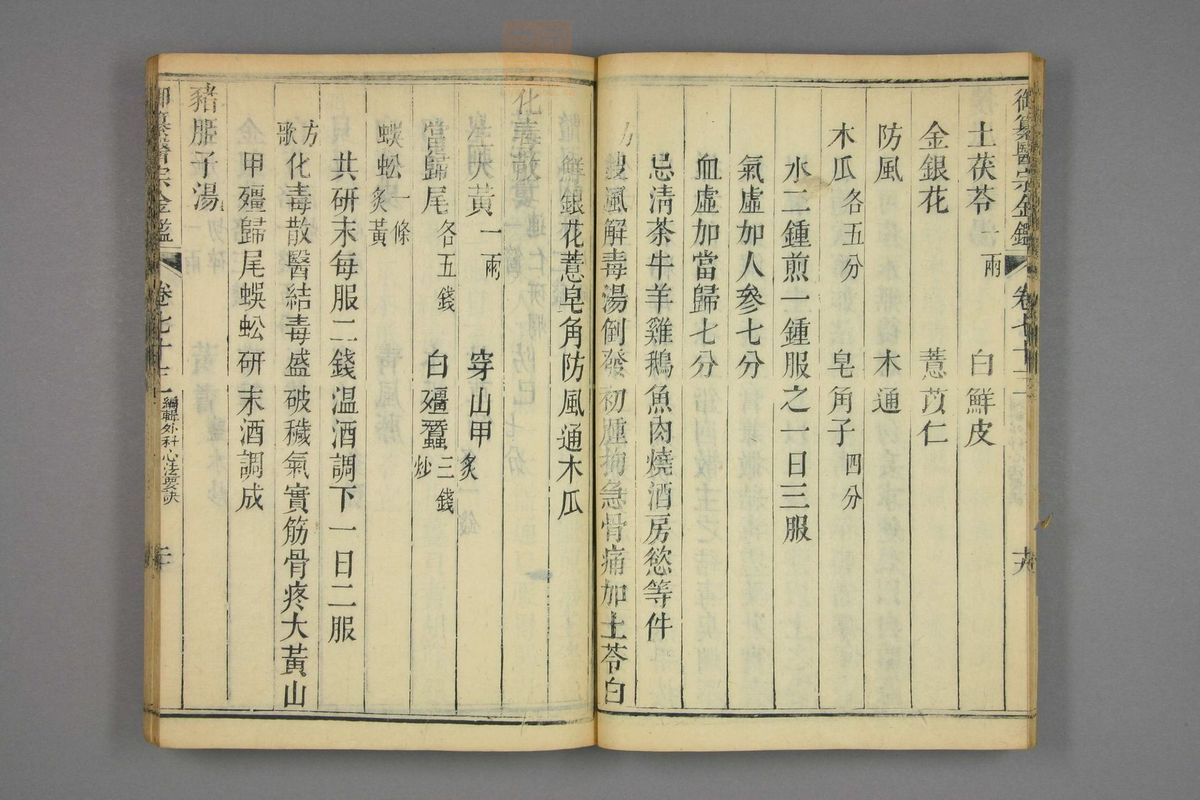 御纂醫宗金鑑 卷七十三 十六
土茯苓一兩 白鮮皮
金銀花 薏苡仁
防風 木通
木瓜各五分 皂角子四分
水二鍾煎一鍾服之一日三服
氣虛加人參七分
血虛加當歸七分
忌清茶牛羊雞鵝魚肉燒酒房慾等件
搜風解毒湯倒發初腫拘急骨痛加土苓白
鮮銀花薏皂角防風通木瓜
化毒散
大黃一兩 穿山甲炙
當歸尾各五錢 白殭蠶三錢炒
蜈蚣一條炙黃
共研末每服二錢温酒調下一日二服
方歌 化毒散醫結毒盛破穢氣實筋骨疼大黃山
甲殭歸尾蜈蚣研末酒調成
豬胆子湯
御纂醫宗金鑑 卷七十三 編輯外科心法要訣